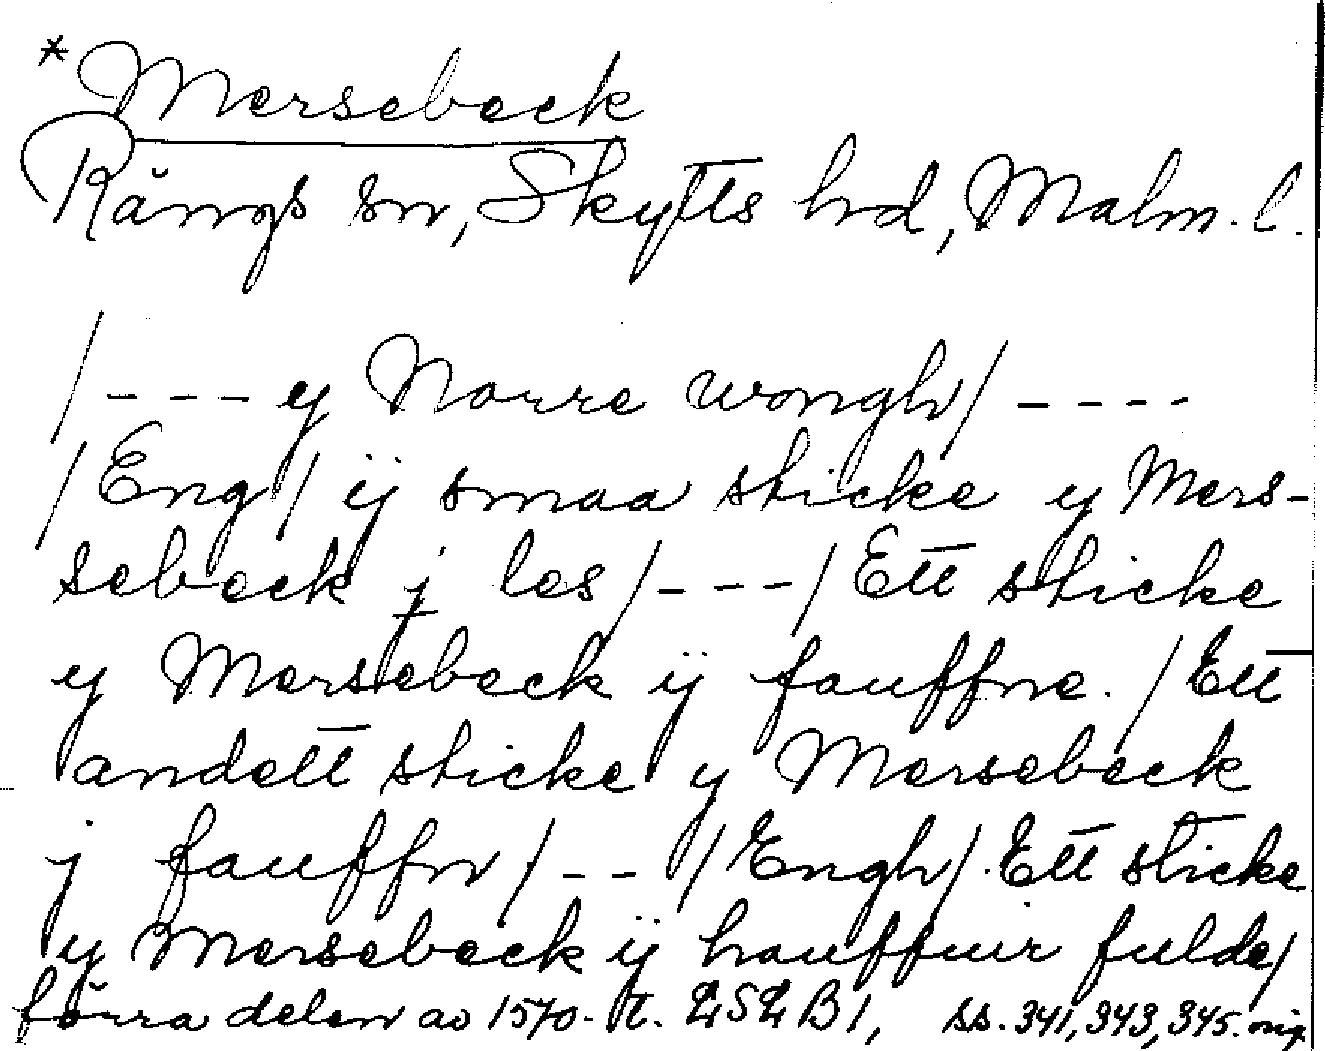 *Mersebeck
Rängs sn, Skytts hrd, Malm. l.
/---y Norre wongh/----
/Eng/ ij smaa sticke y Mers-
sebeck j les/---/Ett sticke
y Mersebeck ij fauffne. /Ett
andett sticke y Mersebeck
j fauffn/--/Engh/. Ett sticke
y Mersebeck ij hauffuir fulde/
förra delen av 1570-t. LSL B1, ss. 341, 343, 345. orig.